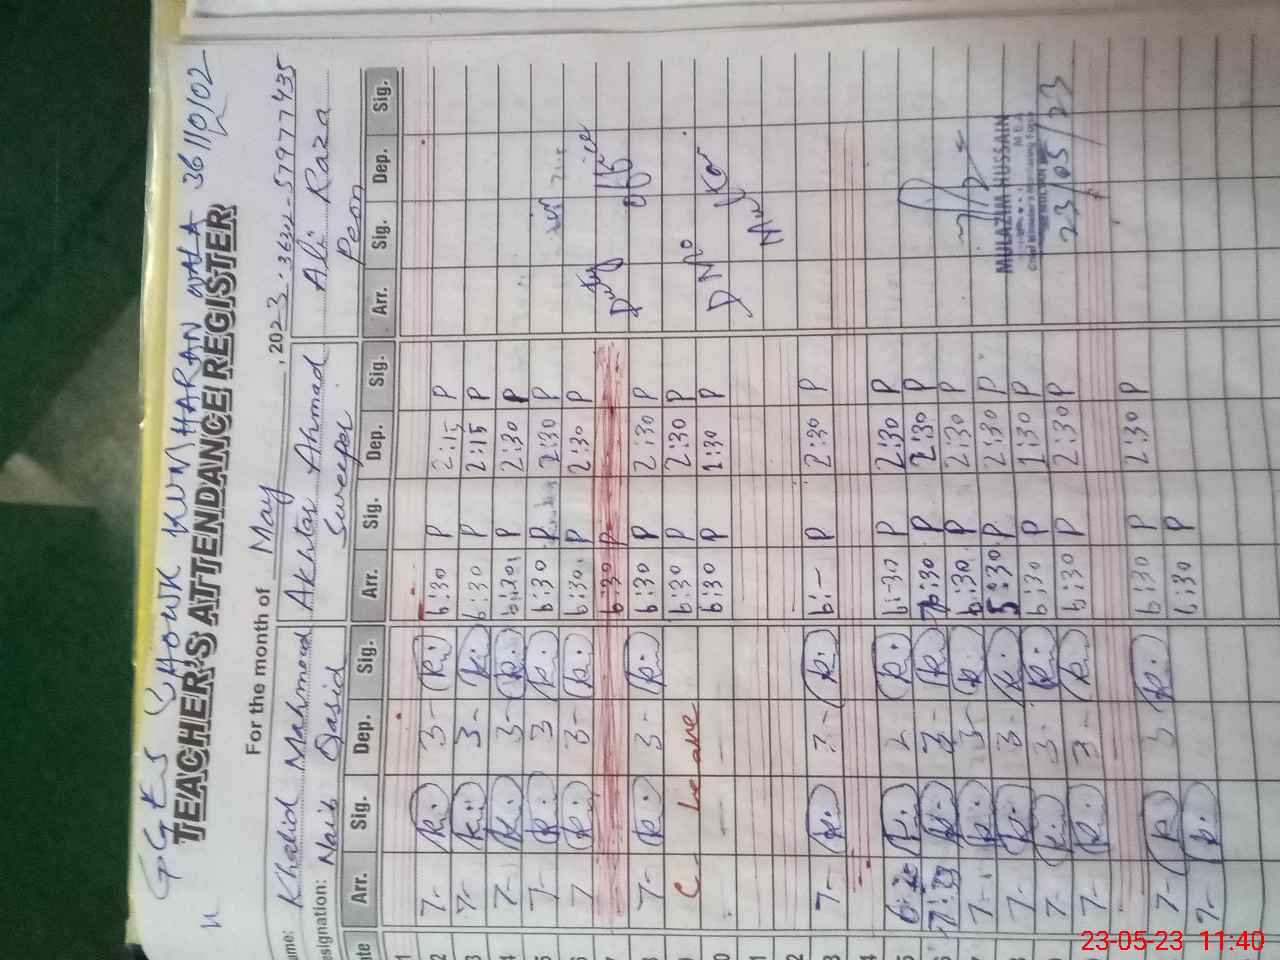 GGES CHOWK KUM HARAN WALA 36110102
TEACHER'S ATTENDANCE REGISTER
For the month of May, 2023. 36302-5797743
Name: Khalid Mahmood Akhtar Ahmad Ali Raza
Designation: Naib Qasid Sweeper Peon
Date Arr. Sig. Dep. Sig. Arr. Sig. Dep. Sig. Arr. Sig. Dep. Sig.
1
2 7- K. 3- K. 6:30 P 2:15 P
3 7- K. 3- K. 6:30 P 2:15 P
4 7- K. 3- K. P 2:30 P
5 7- K. 3 K. 6:30 P 2:30 P
6 7 K. 3- K. 6:30 P 2:30 P
7 6:30 P Duty office
8 7- K. 3- K. 6:30 P 2:30 P
9 C- leave 6:30 P 2:30 P
10 6:30 P P
11
12
13 7- K. K. 6:- P 2:30 P
14
15 K. K. 6:30 P 2:30 P
16 7:30 K. 3- K. P 2:30 P
17 7- K. 3- K. 6:30 P 2:30 P
18 7- K. 3- K. P 2:30 P
19 7- K. 3- K. 6:30 P P
20 7- K. 3- K. 6:30 P 2:30 P
21
22 7- K. 3 K. 6:30 P 2:30 P
23 7- K. 6:30 P
MULAZIM HUSSAIN
23/05/23
23-05-23 11:40